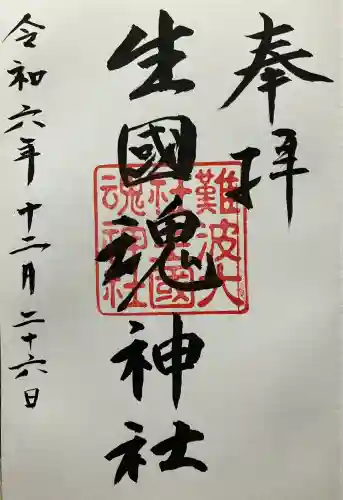 奉拝
生國魂神社
難波大
社生國
魂神社
令和六年十二月二十六日